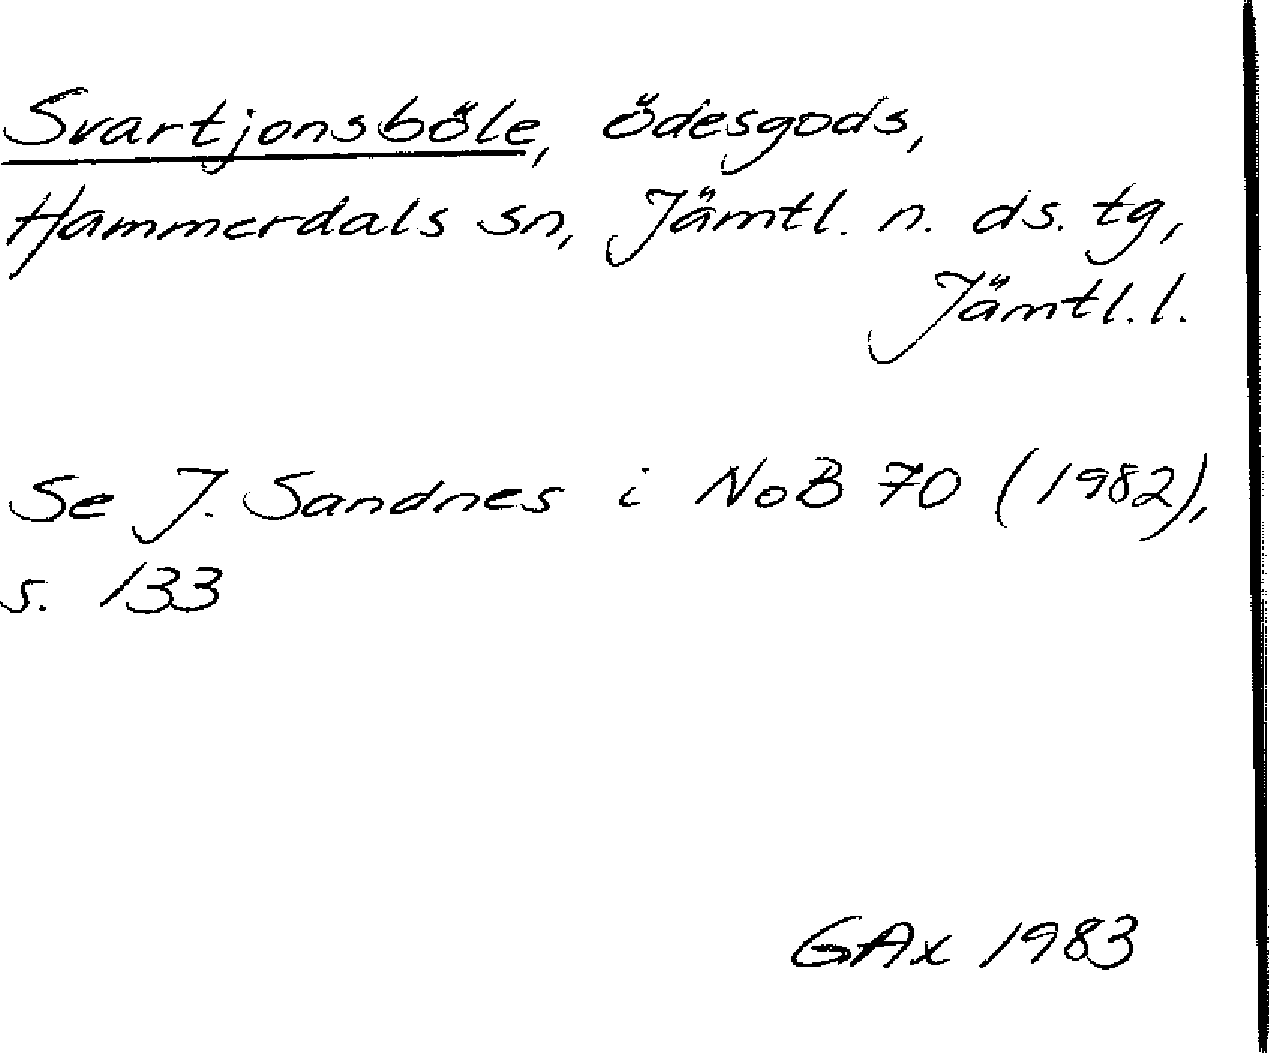 Svartjonsböle, ödesgods,
Hammerdals sn, Jämtl. n. ds. tg,
Jämtl. l.
Se J. Sandnes i NoB 70 (1982),
s. 133
GAx 1983